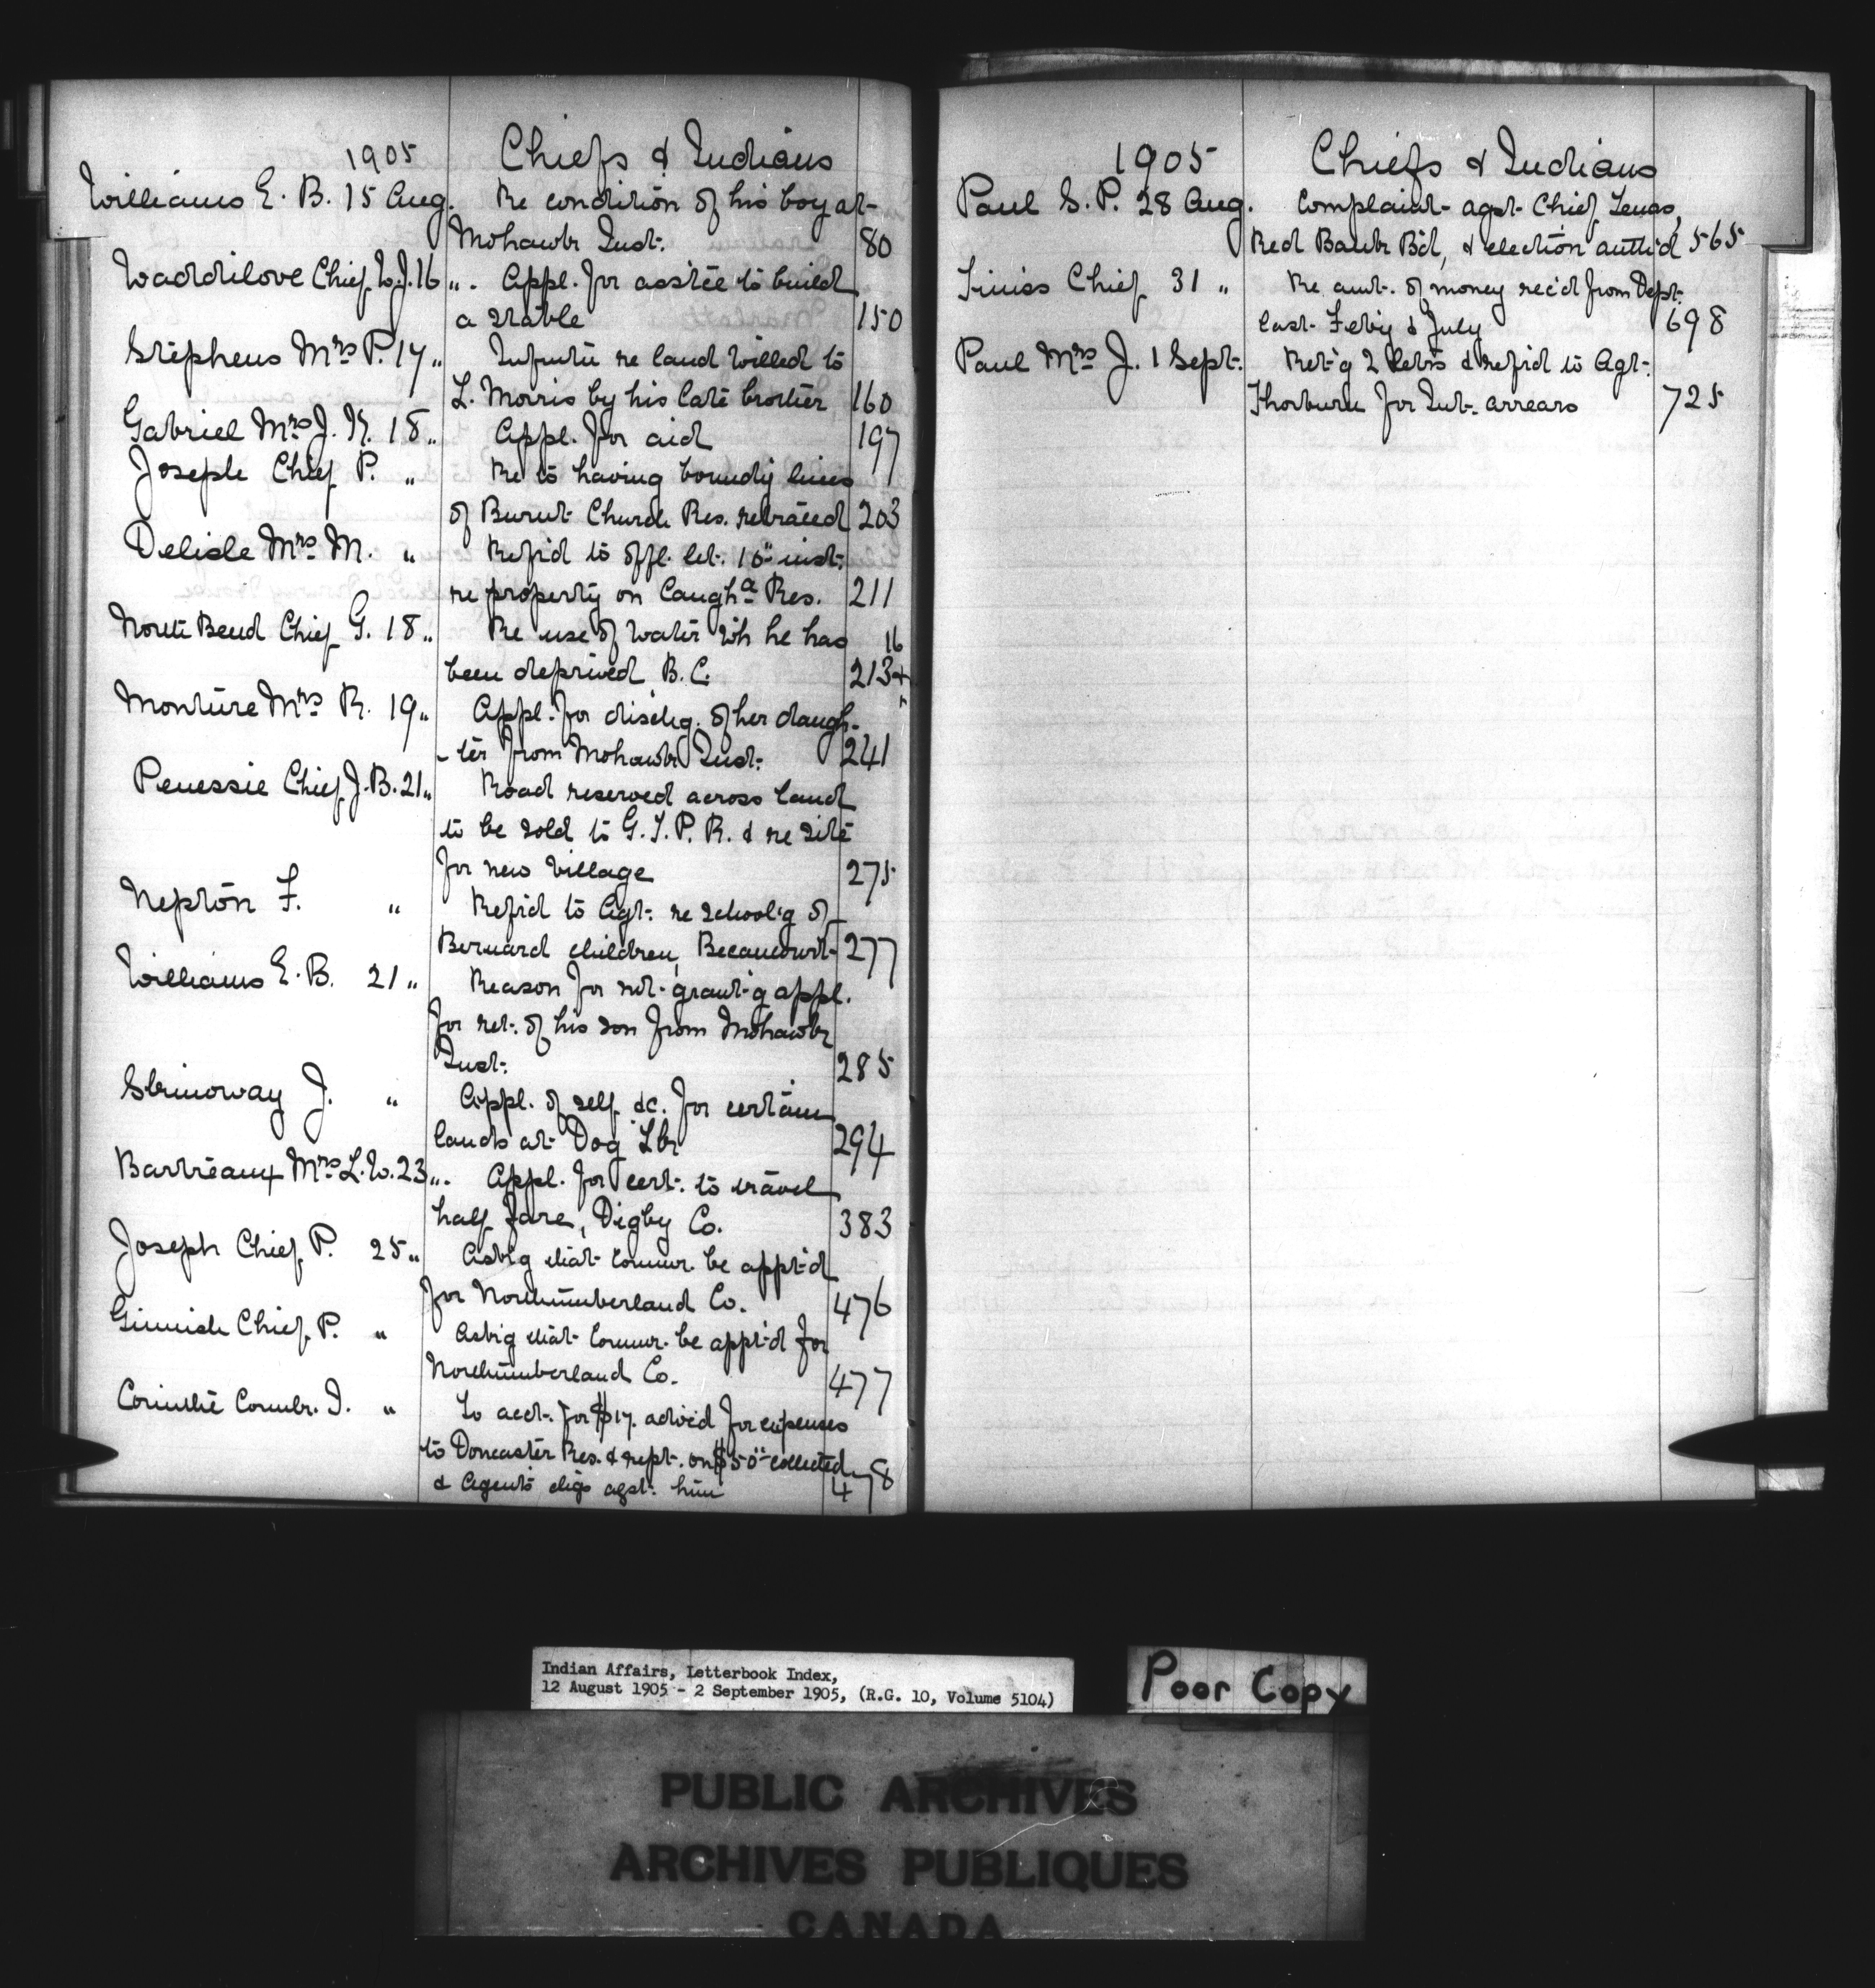 1905 Chiefs & Indians
Williams E. B. 15 Aug. Re condition of his boy at
Mohawk Inst. 80
Waddilove Chief W.J. 16 " . Appl. for asst'ce to build
a stable 150
Stephens Mrs P. 17 " Infn re land willed to
L. Morris by his late brother 160
Gabriel Mrs J. K. 18 " Appl. for aid 197
Joseph Chief P. " Re to having boundy lines
of Burnt Church Res. retraced 203
Delisle Mrs M. " Refr'd to offl. let. 10th inst.
re property on Caugha Res. 211
North Bend Chief G. 18 " Re use of water wh he has 16
been deprived B.C. 213+
Monture Mrs R. 19 " Appl. for dischg. of her daugh-
-ter from Mohawk Inst. 241
Penessie Chief J.B. 21 " Road reserved across land
to be sold to G.T.P.R. & re site
for new village 275
Nepton F. " Refr'd to Agt. re school'g of
Bernard children, Becancourt 277
Williams E. B. 21 " Reason for not grant'g appl.
for ret. of his son from Mohawk
Inst. 285
Skinoway J. " Appl. of self &c. for certain
lands at Dog Lk 294
Barteaux Mrs L.W. 23 " . Appl. for cert. to travel
half fare, Digby Co. 383
Joseph Chief P. 25 " Ask'g that Commr. be appt'd
for Northumberland Co. 476
Ginnish Chief P. " Ask'g that Commr. be appt'd for
Northumberland Co. 477
Corinthe J. " To acct. for $17. adv'd for expenses
to Doncaster Res. & rept. on $50.00 collected
& Agent's chgs agst. him 478
1905 Chiefs & Indians
Paul S. P. 28 Aug. Complaint agst Chief
Red Bank Bd, & election auth'd 565
Chief 31 " Re amt. of money rec'd from Dept.
last Feb'y & July 698
Paul Mrs J. 1 Sept. Ret'g 2 & refr'd to Agt.
Thorburn for Int. arrears 725
Indian Affairs, Letterbook Index,
12 August 1905 - 2 September 1905, (R.G. 10, Volume 5104)
Poor Copy
PUBLIC ARCHIVES
ARCHIVES PUBLIQUES
CANADA